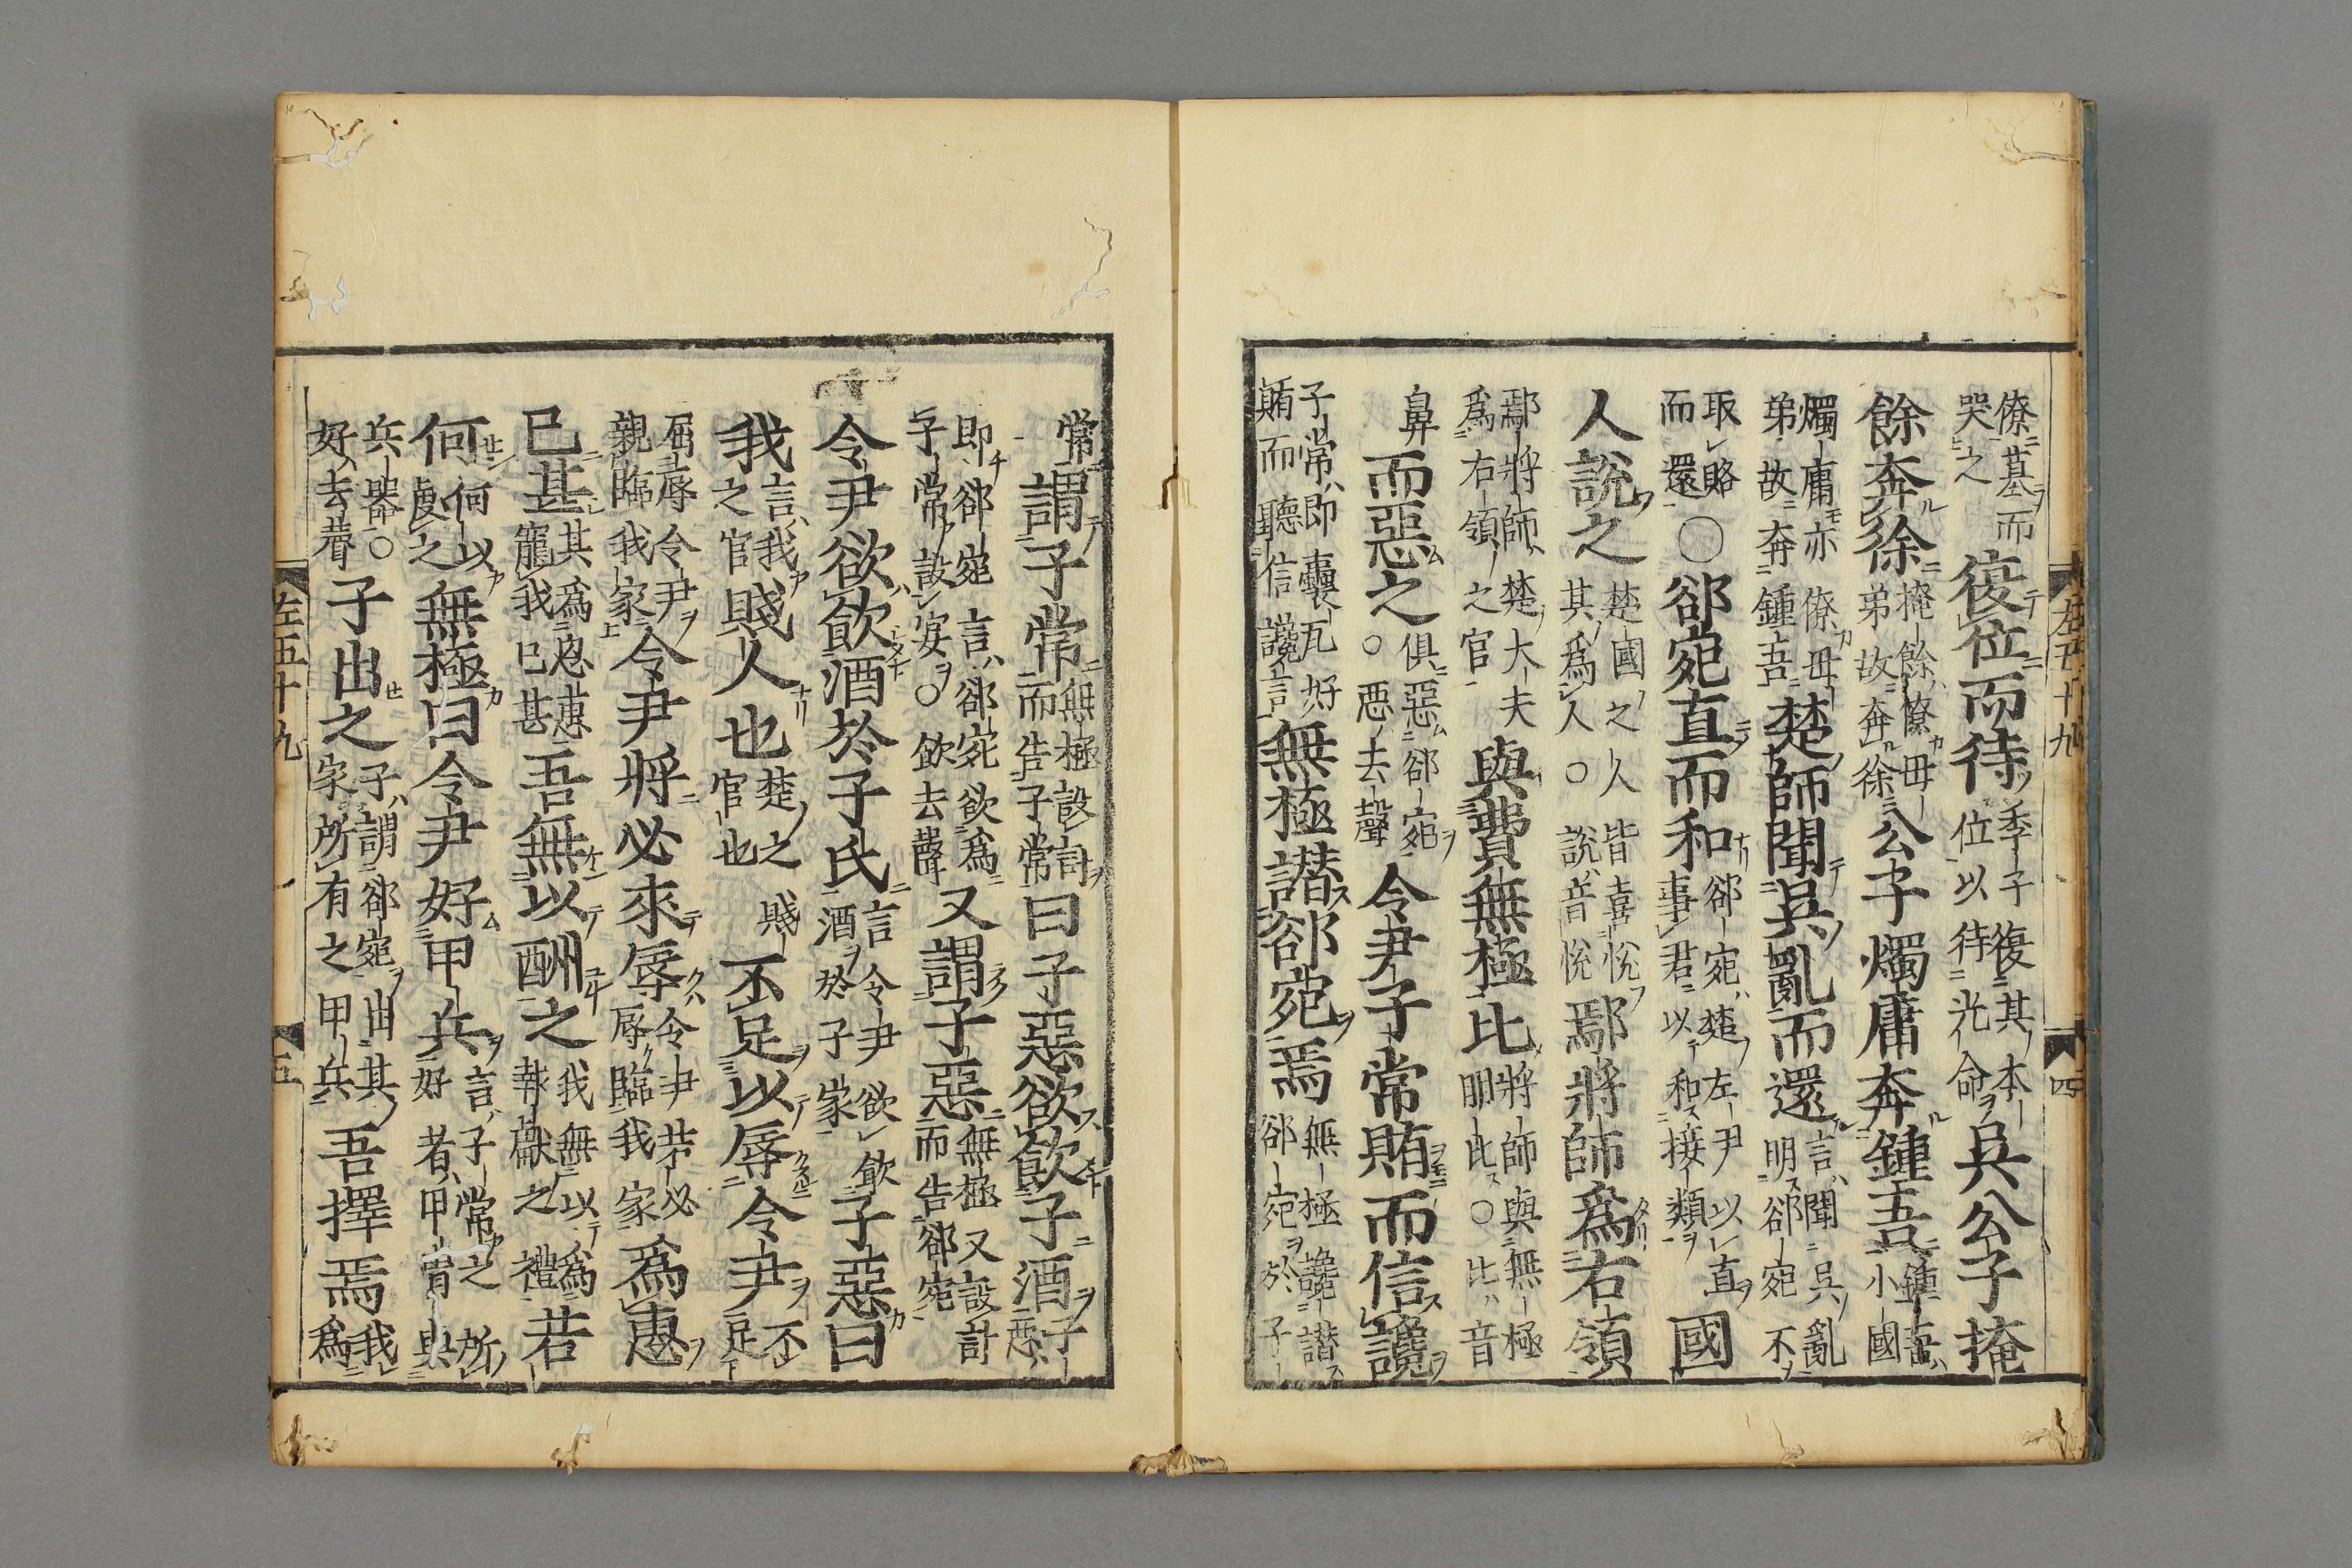 僚墓而哭之復位而待季子復其本位以待光命吳公子掩
餘奔徐掩餘僚母弟故奔徐公子燭庸奔鍾吾鍾吾小國
燭庸亦僚母弟故奔鍾吾楚師聞吳亂而還言聞吳亂明郤宛不
取賂而還○郤宛直而和郤宛楚左尹以直事君以和接類國
人說之楚國之人皆喜悅其爲人○說音悅鄢將師爲右領
鄢將師楚大夫爲右領之官與費無極比將師與無極朋比○比音
鼻而惡之俱惡郤宛○惡去聲令尹子常賄而信讒
子常即囊瓦好賄而聽信讒言無極譖郤宛焉無極讒譖郤宛於子
常謂子常無極設計而告子常曰子惡欲飲子酒子惡
即郤宛言郤宛欲爲子常設宴○飲去聲又謂子惡無極又設計而告郤宛
令尹欲飲酒於子氏言令尹欲飲酒於子家子惡曰
我言我之官賤人也楚之賤官也不足以辱令尹不足
屈辱令尹親臨我家令尹將必來辱令尹若必辱臨我家爲惠
已甚其爲恩惠寵我已甚吾無以酬之我無以爲報獻之禮若
何何以處之無極曰令尹好甲兵言子常之所好者甲冑與
兵器○好去聲子出之子謂郤宛出其家所有之甲兵吾擇焉我爲
左五十九 四
左五十九 五